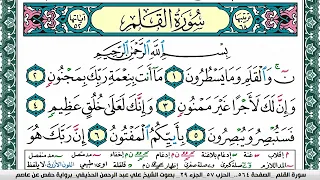 سُورَةُ الْقَلَمِ
بِسْمِ اللَّهِ الرَّحْمَٰنِ الرَّحِيمِ
نٓ وَالْقَلَمِ وَمَا يَسْطُرُونَ ١ مَا أَنتَ بِنِعْمَةِ رَبِّكَ بِمَجْنُونٍ ٢
وَإِنَّ لَكَ لَأَجْرًا غَيْرَ مَمْنُونٍ ٣ وَإِنَّكَ لَعَلَىٰ خُلُقٍ عَظِيمٍ ٤
فَسَتُبْصِرُ وَيُبْصِرُونَ ٥ بِأَييِّكُمُ الْمَفْتُونُ ٦ إِنَّ رَبَّكَ هُوَ
سورة القلم الصفحة ٥٦٤.. الحزب ٥٧ .. الجزء ٢٩ .. بصوت الشيخ علي عبد الرحمن الحذيفي .. برواية حفص عن عاصم